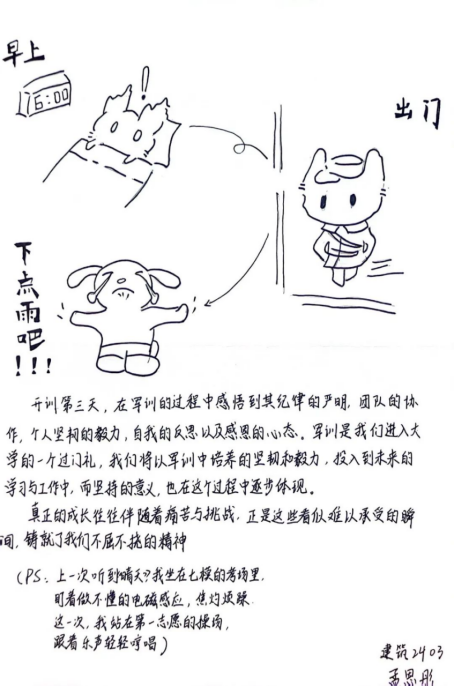 早上
6:00
!
出门
下点雨吧!!!
开训第三天，在军训的过程中感悟到其纪律的严明，团队的协
作，个人坚韧的毅力，自我的反思以及感恩的心态。军训是我们进入大
学的一个过门礼，我们将以军训中培养的坚韧和毅力，投入到未来的
学习与工作中，而坚持的意义，也在这个过程中逐步体现。
真正的成长往往伴随着痛苦与挑战，正是这些看似难以承受的瞬
间，铸就了我们不屈不挠的精神
(PS：上一次听到晴天?我坐在七模的考场里，
盯着做不懂的电磁感应，焦灼烦躁.
这一次，我站在第一志愿的操场，
跟着乐声轻轻哼唱)
建筑2403
孟思彤